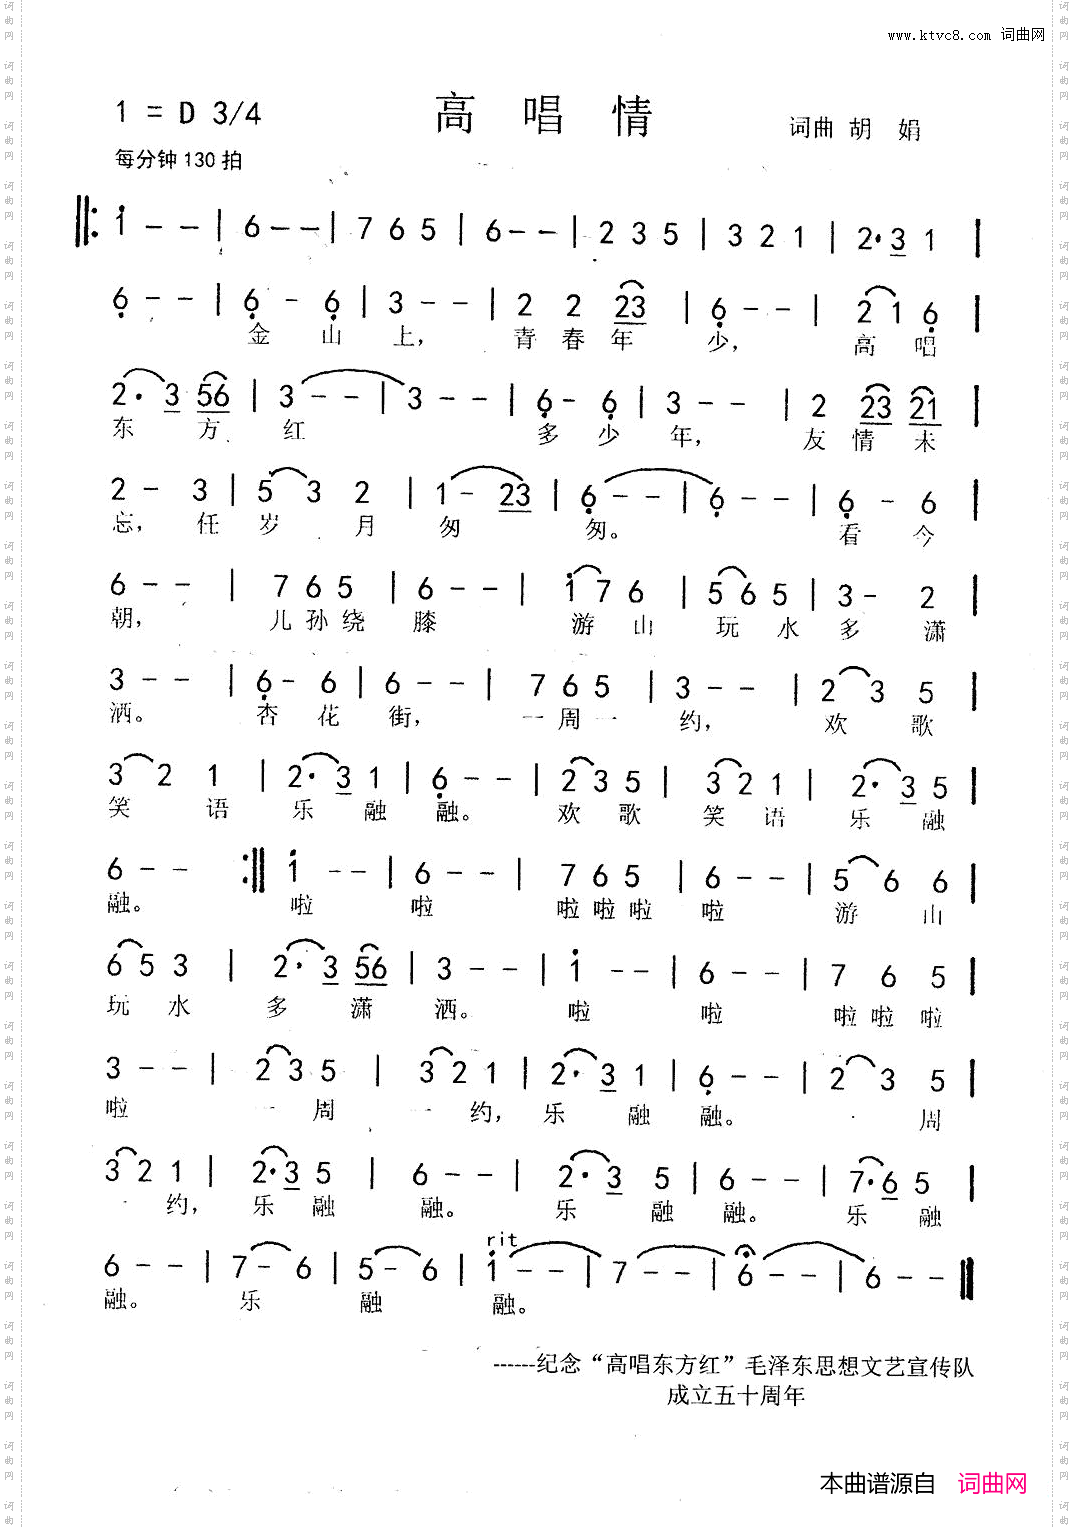 www.ktvc8.com 词曲网
1 = D 3/4 高 唱 情 词曲 胡 娟
每分钟 130 拍
‖: 1 - - | 6 - - | 7 6 5 | 6 - - | 2 3 5 | 3 2 1 | 2· 3 1 |
6 - - | 6 - 6 | 3 - - | 2 2 23 | 6 - - | 2 1 6 |
金 山 上， 青 春 年 少， 高 唱
2· 3 56 | 3 - - | 3 - - | 6 - 6 | 3 - - | 2 23 21 |
东 方 红 多 少 年， 友 情 未
2 - 3 | 5 3 2 | 1 - 23 | 6 - - | 6 - - | 6 - 6 |
忘， 任 岁 月 匆 匆。 看 今
6 - - | 7 6 5 | 6 - - | 1 7 6 | 5 6 5 | 3 - 2 |
朝， 儿 孙 绕 膝 游 山 玩 水 多 潇
3 - - | 6 - 6 | 6 - - | 7 6 5 | 3 - - | 2 3 5 |
洒。 杏 花 街， 一 周 一 约， 欢 歌
3 2 1 | 2· 3 1 | 6 - - | 2 3 5 | 3 2 1 | 2· 3 5 |
笑 语 乐 融 融。 欢 歌 笑 语 乐 融
6 - - :‖ 1 - - | 6 - - | 7 6 5 | 6 - - | 5 6 6 |
融。 啦 啦 啦 啦 啦 啦 游 山
6 5 3 | 2· 3 56 | 3 - - | 1 - - | 6 - - | 7 6 5 |
玩 水 多 潇 洒。 啦 啦 啦 啦 啦
3 - - | 2 3 5 | 3 2 1 | 2· 3 1 | 6 - - | 2 3 5 |
啦 一 周 一 约， 乐 融 融。 周
3 2 1 | 2· 3 5 | 6 - - | 2· 3 5 | 6 - - | 7· 6 5 |
约， 乐 融 融。 乐 融 融。 乐 融
rit
6 - - | 7 - 6 | 5 - 6 | 1 - - | 7 - - | 6 - - | 6 - - ‖
融。 乐 融 融。
------纪念“高唱东方红”毛泽东思想文艺宣传队
成立五十周年
本曲谱源自 词曲网